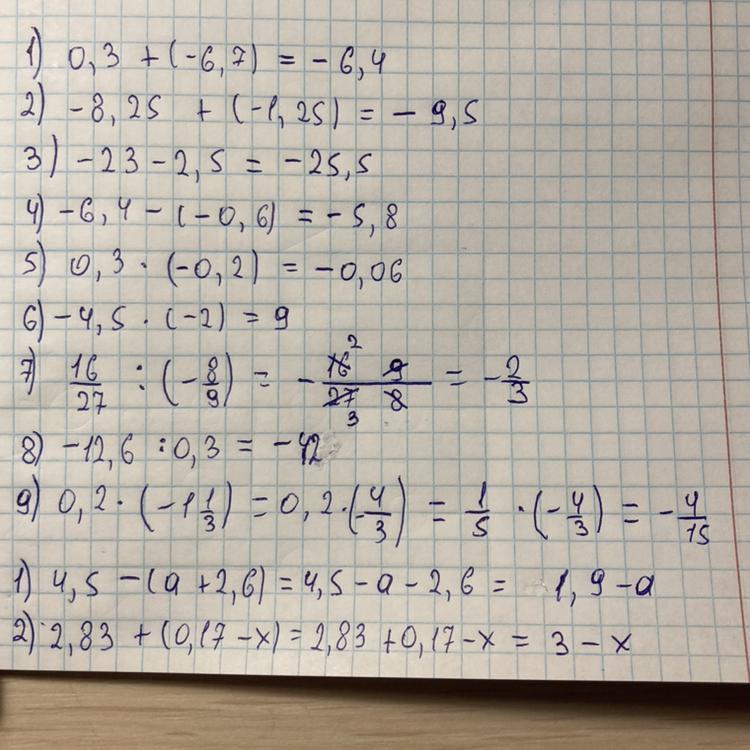 1) 0,3 + (-6,7) = -6,4
2) -8,25 + (-1,25) = -9,5
3) -23 - 2,5 = -25,5
4) -6,4 - (-0,6) = -5,8
5) 0,3 · (-0,2) = -0,06
6) -4,5 · (-2) = 9
7) 16/27 : (-8/9) = - 16² 9 / 27₃ 8 = -2/3
8) -12,6 : 0,3 = -42
9) 0,2 · (-1 1/3) = 0,2 · (-4/3) = 1/5 · (-4/3) = -4/15
1) 4,5 - (a + 2,6) = 4,5 - a - 2,6 = 1,9 - a
2) 2,83 + (0,17 - x) = 2,83 + 0,17 - x = 3 - x